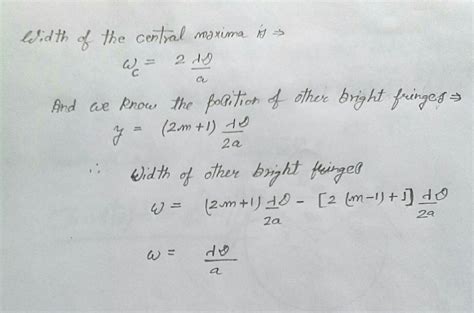 Width of the central maxima is ⇒
ω_c = 2 λD/a
And we know the position of other bright fringes ⇒
y = (2m+1) λD/2a
∴ Width of other bright fringes
ω = (2m+1) λD/2a - [2(m-1)+1] λD/2a
ω = λD/a